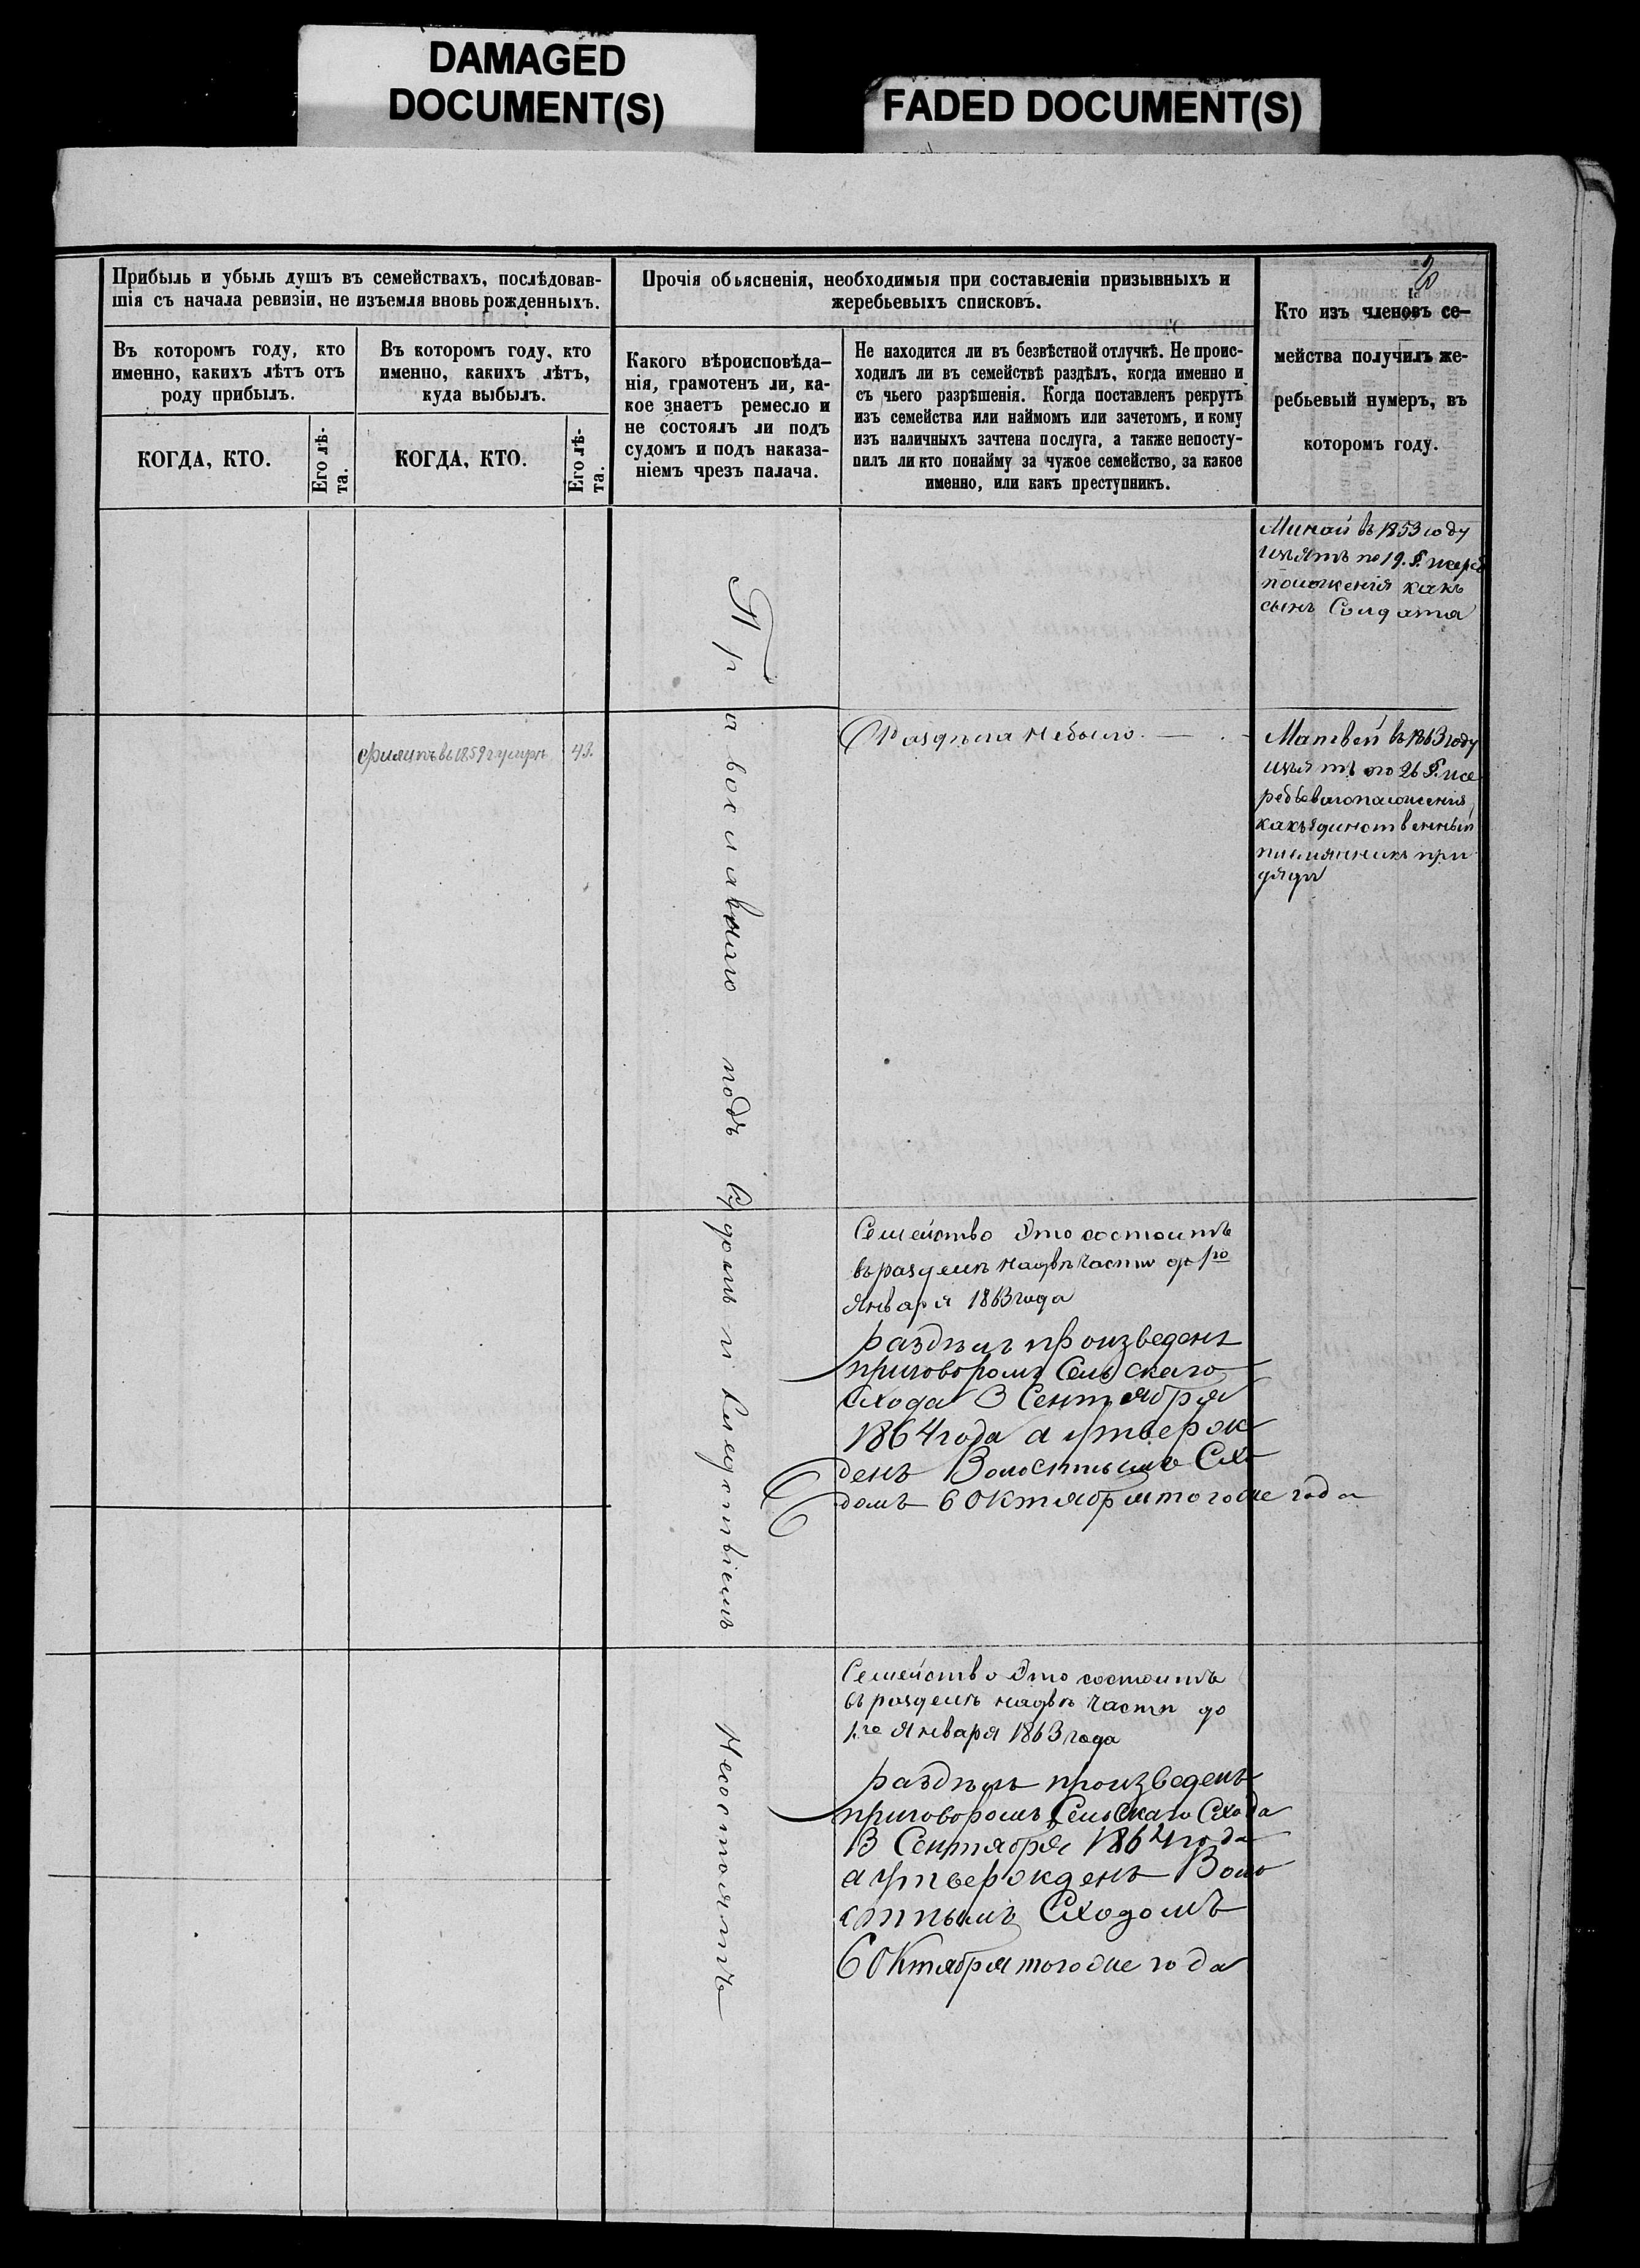 DAMAGED
DOCUMENT(S)
FADED DOCUMENT(S)
Прибыль и убыль душъ въ семействахъ, послѣдовав-
шія съ начала ревизіи, не изъемля вновь рожденныхъ.
Въ которомъ году, кто
именно, какихъ лѣтъ отъ
роду прибылъ.
КОГДА, КТО.
Его лѣ-
та.
Въ которомъ году, кто
именно, какихъ лѣтъ,
куда выбылъ.
КОГДА, КТО.
Его лѣ-
та.
Прочія объясненія, необходимыя при составленіи призывныхъ и
жеребьевыхъ списковъ.
Какого вѣроисповѣда-
нія, грамотенъ ли, ка-
кое знаетъ ремесло и
не состоялъ ли подъ
судомъ и подъ наказа-
ніемъ чрезъ палача.
Не находится ли въ безвѣстной отлучкѣ. Не проис-
ходилъ ли въ семействѣ раздѣлъ, когда именно и
съ чьего разрѣшенія. Когда поставленъ рекрутъ
изъ семейства или наймомъ или зачетомъ, и кому
изъ наличныхъ зачтена послуга, а также непосту-
пилъ ли кто понайму за чужое семейство, за какое
именно, или какъ преступникъ.
Кто изъ членовъ се-
мейства получилъ же-
ребьевый нумеръ, въ
которомъ году.
Минай въ 1853 году
изъятъ по 19. §. жереб
положенія какъ
сынъ Солдата
Православнаго подъ Судомъ и Следствіемъ
Несостоятъ
Филипъ въ 1859 г умеръ 43.
Раздѣла небыло.
Матвей въ 1863 году
изъятъ по 26 §. же
ребьеваго положенія
какъ единственный
племянникъ при
дядѣ
Семейство Это состоитъ
въ разделѣ на двѣ части до 1го
Января 1863 года
раздѣлъ произведенъ
приговоромъ Сельскаго
Схода 3 Сентября
1864 года а утверж
денъ Волостнымъ Схо
домъ 6 Октября того же года
Семейство Это состоитъ
въ разделѣ на двѣ части до
1.го Января 1863 года
раздѣлъ произведенъ
приговоромъ Сельскаго Схода
3 Сентября 1864 года
а утвержденъ Воло
стнымъ Сходомъ
6 Октября того же года